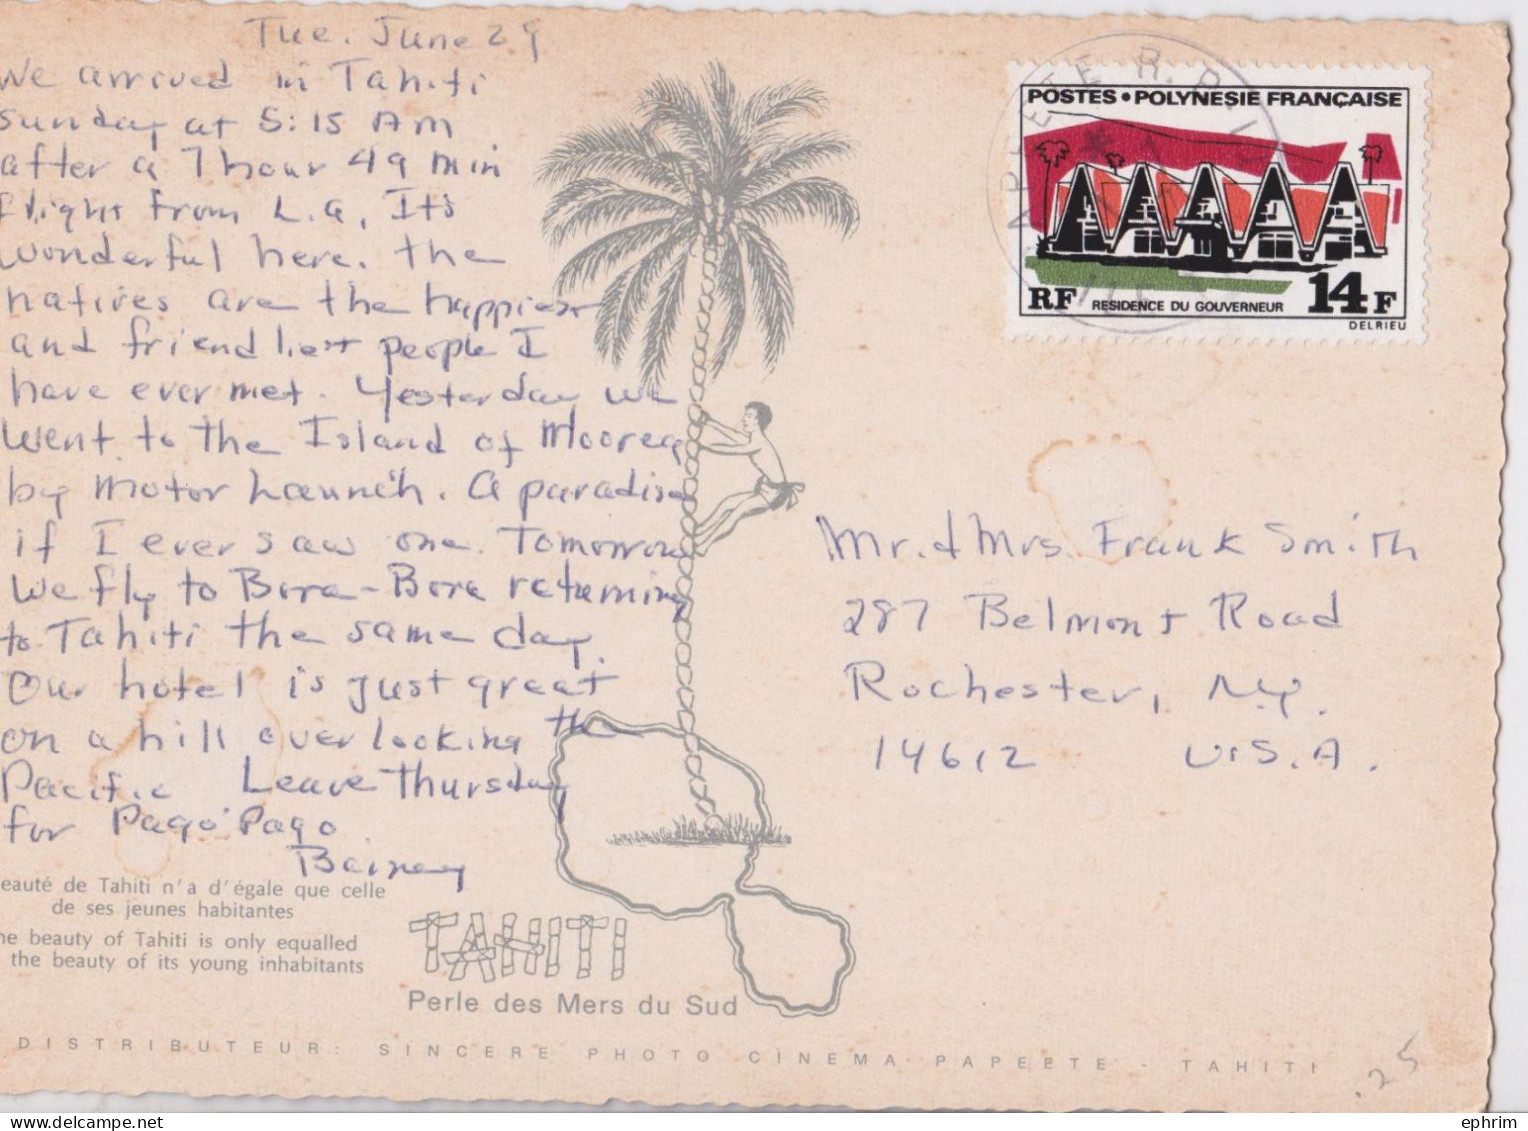 Tue. June 29
We arrived in Tahiti
Sunday at 5:15 AM
after a 7 hour 49 min
flight from L.A. It's
wonderful here. The
natives are the happiest
and friendliest people I
have ever met. Yesterday we
went to the Island of Moorea
by motor launch. A paradise
if I ever saw one. Tomorrow
we fly to Bora-Bora returning
to Tahiti the same day.
Our hotel is just great
on a hill overlooking the
Pacific Leave Thursday
for Pago Pago.
eauté de Tahiti n'a d'égale que celle
de ses jeunes habitantes
he beauty of Tahiti is only equalled
the beauty of its young inhabitants
TAHITI
Perle des Mers du Sud
DISTRIBUTEUR: SINCERE PHOTO CINEMA PAPEETE - TAHITI
POSTES • POLYNESIE FRANÇAISE
RF RESIDENCE DU GOUVERNEUR 14F
DELRIEU
PAPEETE R.P.
Mr. & Mrs. Frank Smith
287 Belmont Road
Rochester, N.Y.
14612 U.S.A.
.25
ephrim